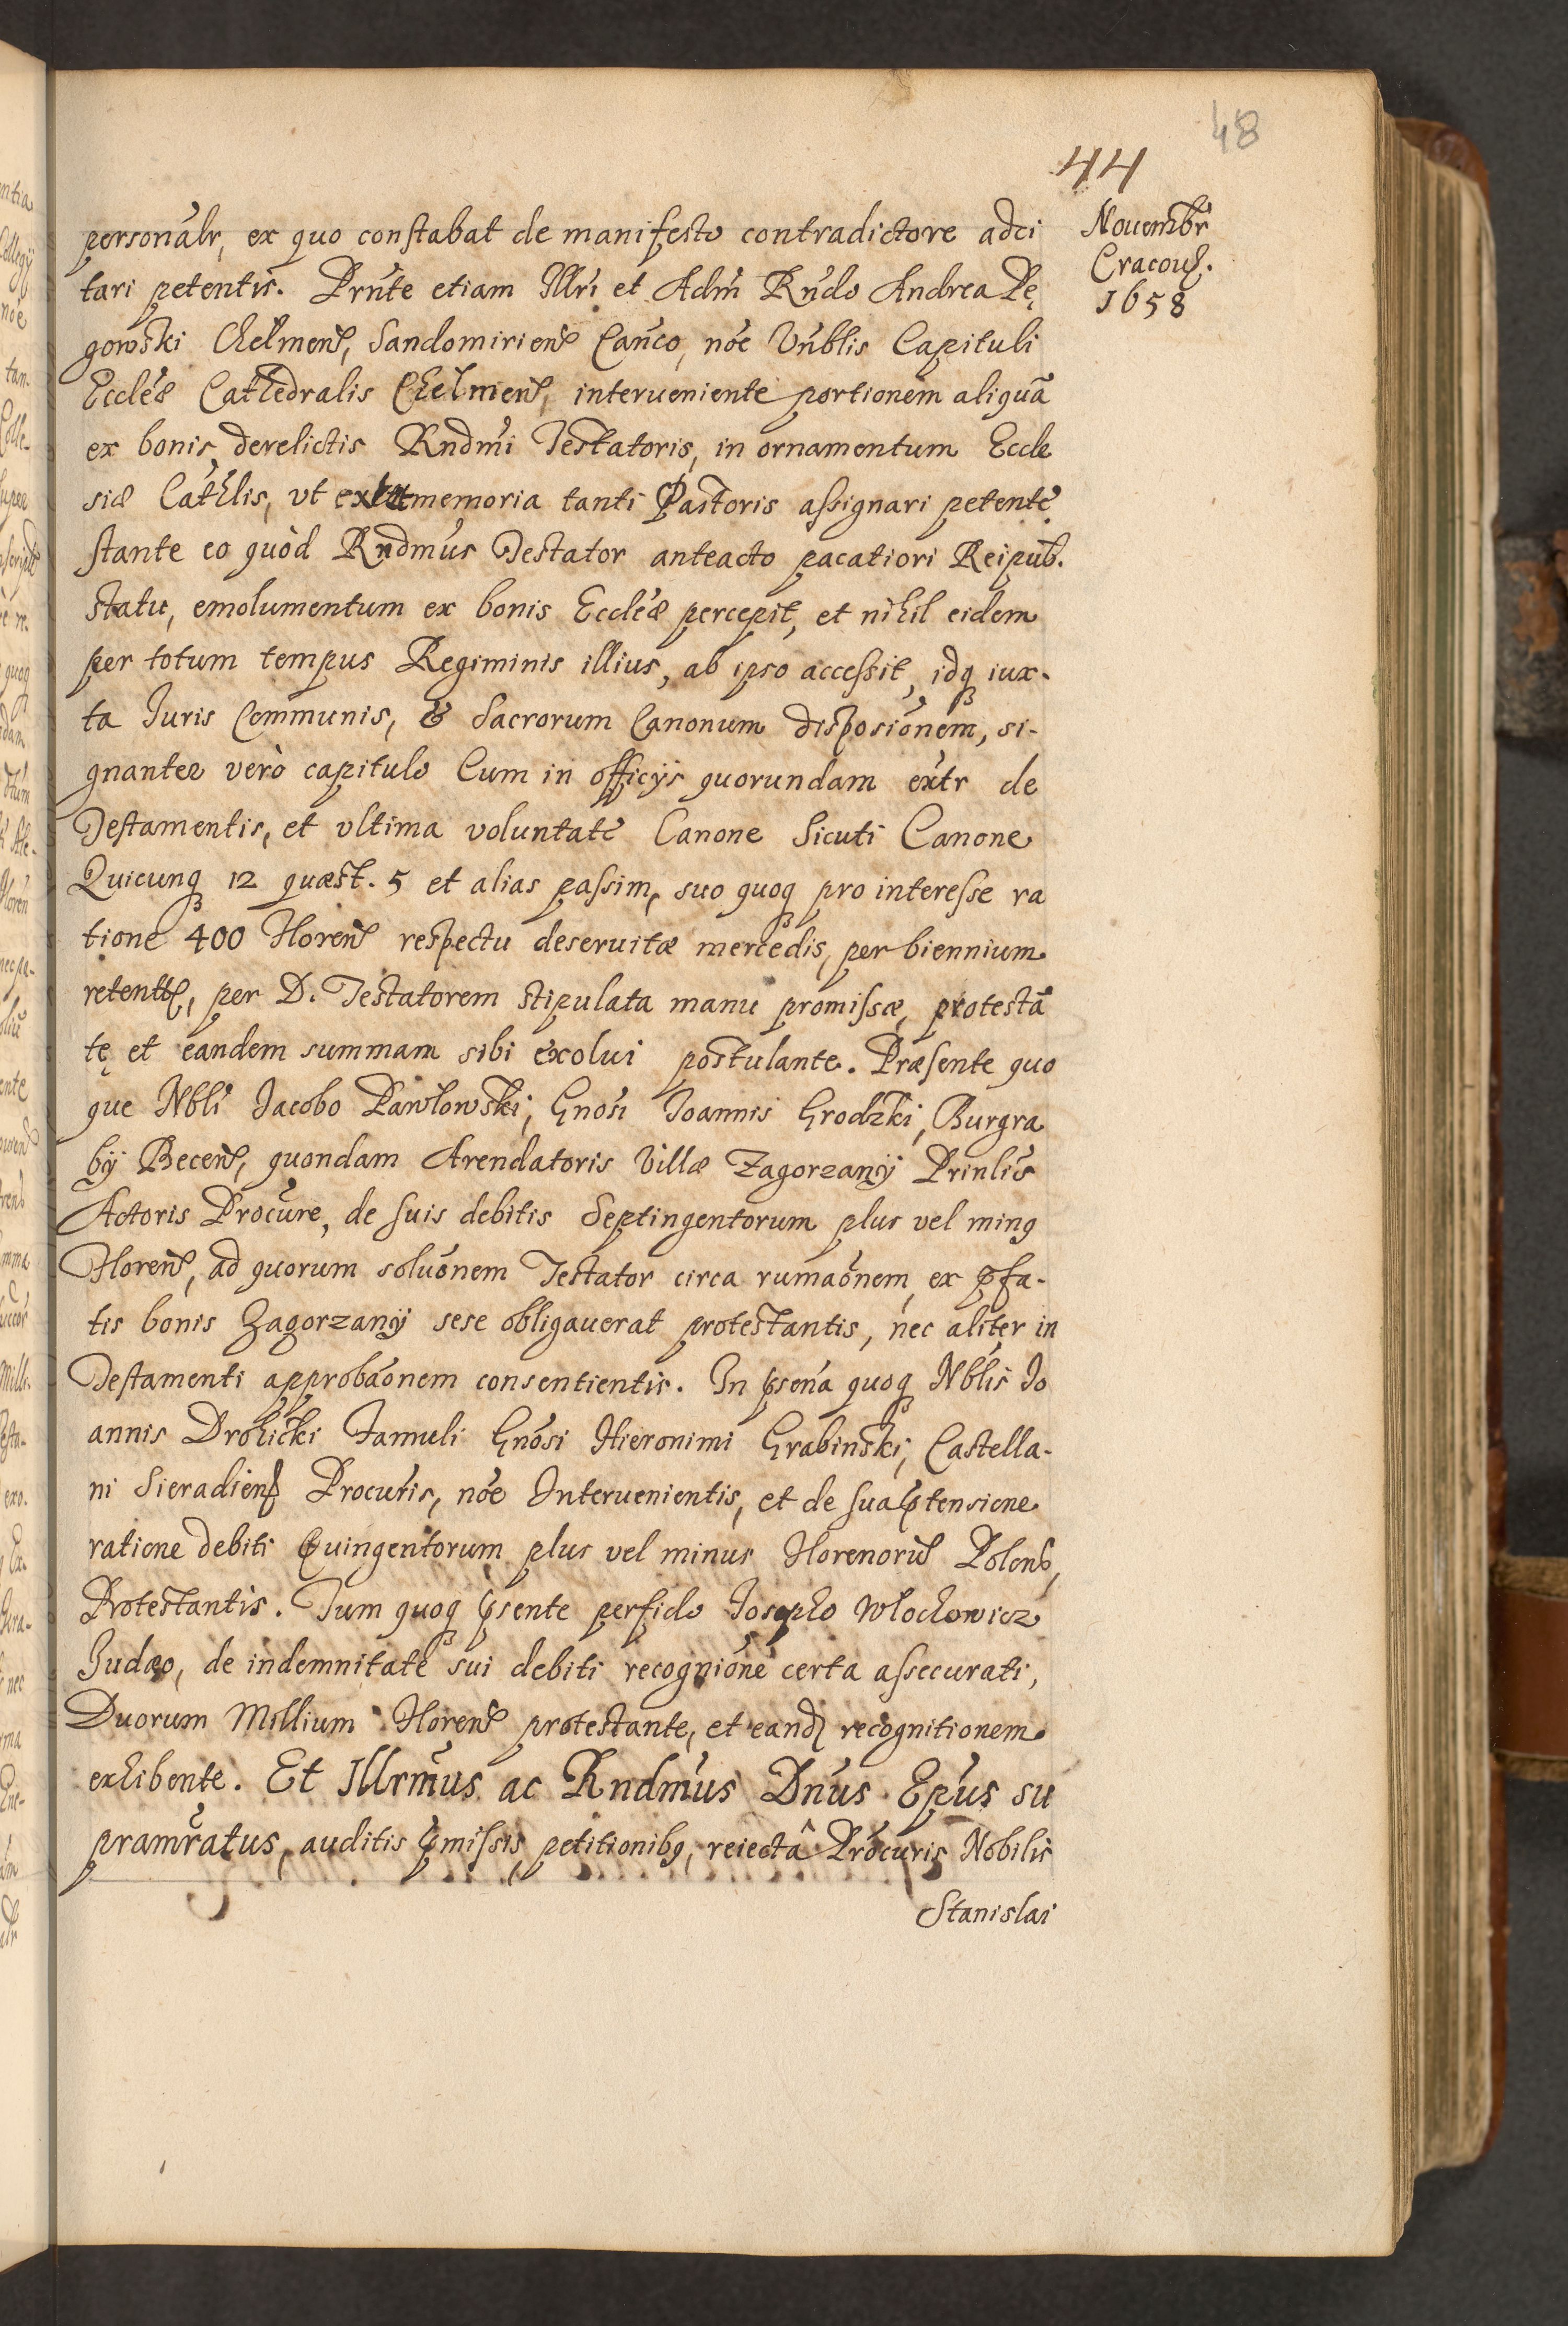 48
44
Nouembr
Cracou.
1658
personalr, ex quo constabat de manifesto contradictore adci
tari petentis. Prnte etiam Illri et Adm Rndo Andrea Pę
gowski Chelmens, Sandomiriens Canco, noe Vnblis Capituli
Eccleæ Cathedralis Chelmens, interueniente portionem aliquã
ex bonis derelictis Rndmi Testatoris, in ornamentum Eccle
siæ Cathlis, vt memoria tanti Pastoris assignari petente
stante eo quòd Rndmus Testator anteacto pacatiori Reipub.
statu, emolumentum ex bonis Eccleæ percepit, et nihil eidem
per totum tempus Regiminis illius, ab ipso accessit, idq iux-
ta Juris Communis, & Sacrorum Canonum disposiónem, si-
gnanter verò capitulo Cum in officijs quorundam extr de
Testamentis, et vltima voluntate Canone Sicuti Canone
Quicunq 12 quæst. 5 et alias passim, suo quoq pro interesse ra
tione 400 florens respectu deseruitæ mercedis, per biennium
per D. Testatorem stipulata manu promissæ, protestã
tę et eandem summam sibi exolui postulante. Præsente quo
que Nbli Jacobo Pawłowski, Gnosi Joannis Grodzki, Burgra
bij Becens, quondam Arendatoris Villæ Zagorzany Prinlis
Actoris Procure, de suis debitis Septingentorum plus vel minq
florens, ad quorum soluónem Testator circa rumaónem, ex pfa-
tis bonis Zagorzany sese obligauerat protestantis, nec aliter in
Testamenti approbaónem consentientis. In psena quoq Nblis Jo
annis Drohicki famuli Gnosi Hieronimi Grabinski, Castella-
ni Sieradiens Procuris, noe Interuenientis, et de sua ptensione
ratione debiti Quingentorum plus vel minus florenorum Polons,
Protestantis. Tum quoq psente perfido Josepho Włochowicz
Judæo, de indemnitate sui debiti recognióne certa assecurati,
Duorum Millium florens protestante, et eand recognitionem
exhibente. Et Illrmus ac Rndmus Dnus Epus su
pramratus, auditis pmissis petitionibq, reiectâ Procuris Nobilis
Stanislai